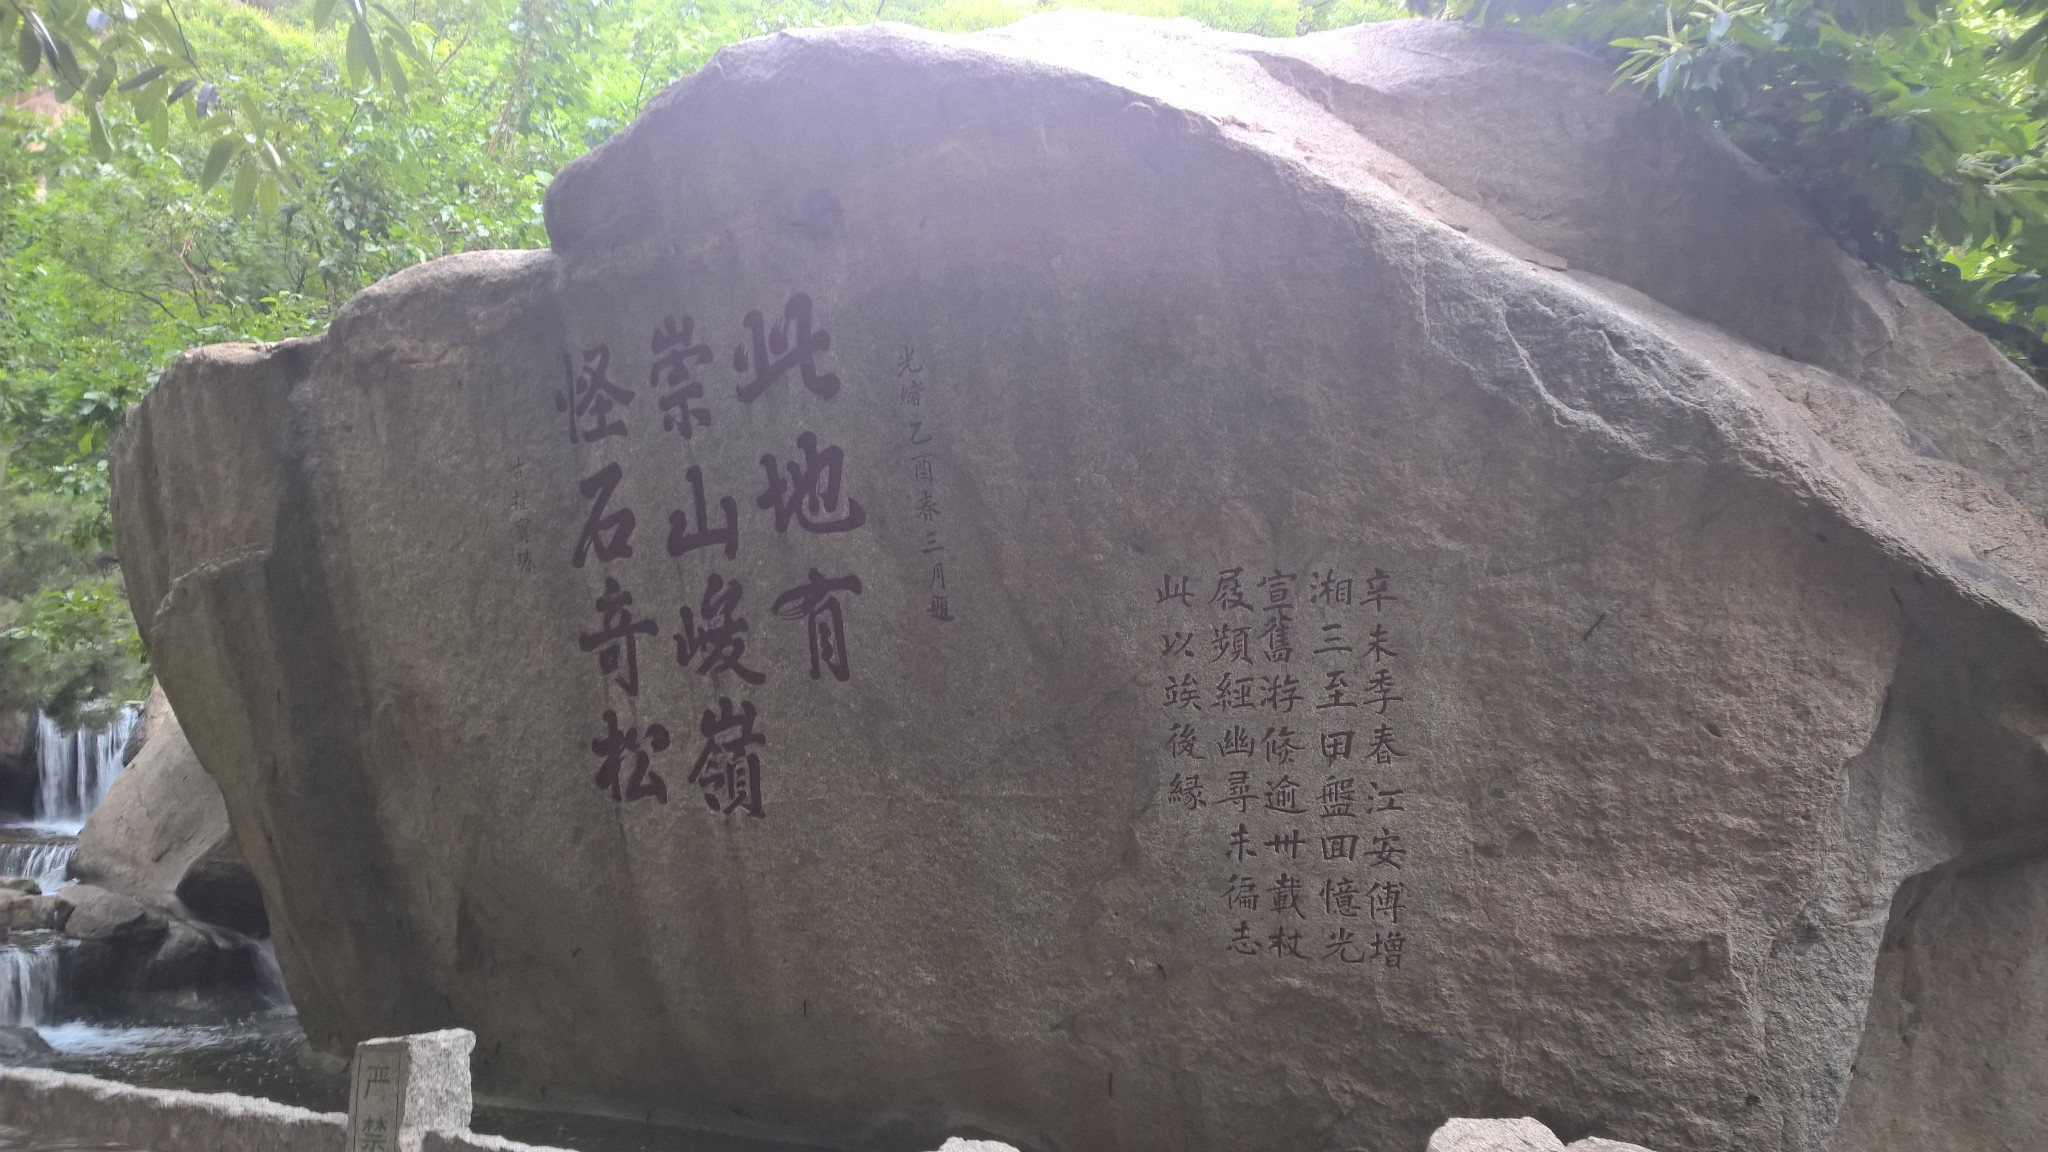 辛未季春江安傅增
湘三至田盤囬憶光
宣舊游倐逾卅載杖
屐頻經幽尋未徧志
此以竢後緣
光緒乙酉春三月題
此地有
崇山峻嶺
怪石竒松
严禁